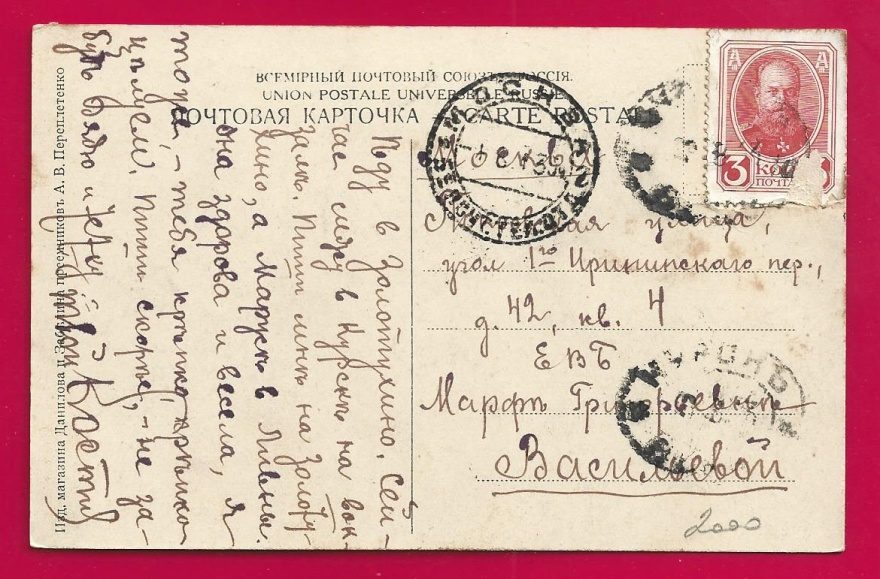 ВСЕМІРНЫЙ ПОЧТОВЫЙ СОЮЗЪ. РОССІЯ.
UNION POSTALE UNIVERSELLE RUSSIE
ПОЧТОВАЯ КАРТОЧКА – CARTE POSTALE
Изд. магазина Данилова и преемниковъ А. В. Переплетенко
Ѣду в Золотухино. Сей-
час сижу в Курскѣ на вок-
залѣ. Пиши мнѣ на Золоту
хино, а Марусѣ в Ливны.
она здорова и весела, я
тоже – тебя крѣпко крѣпко
цѣлуем. Пиши скорѣе, – не за-
будь
твой Костя
Москва
улица,
угол 1го Ирининскаго пер.,
д. 42, кв. 4
ЕВБ
Марфѣ Григорьевнѣ
Васильевой
3 КОП
ПОЧТА
3
МОСКВА
КУРСКЪ
2000